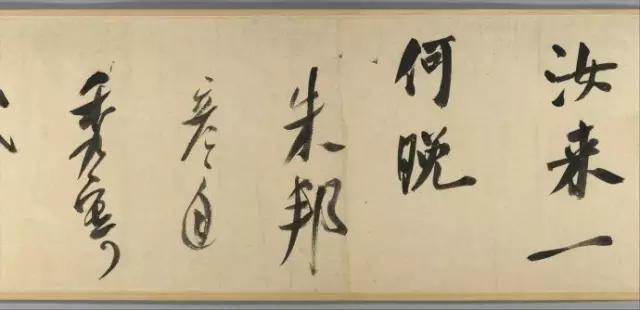 汝来一
何晚
朱邦
彦自
秦寄